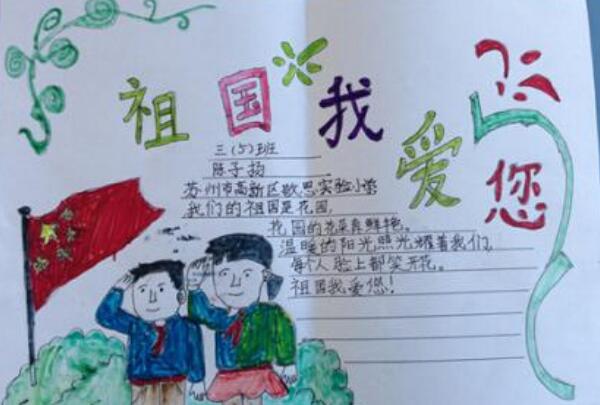 祖国我爱您
三(5)班
陈子扬
苏州市高新区敬恩实验小学
我们的祖国是花园,
花园的花朵真鲜艳。
温暖的阳光,照光耀着我们,
每个人脸上都笑开花。
祖国我爱您!